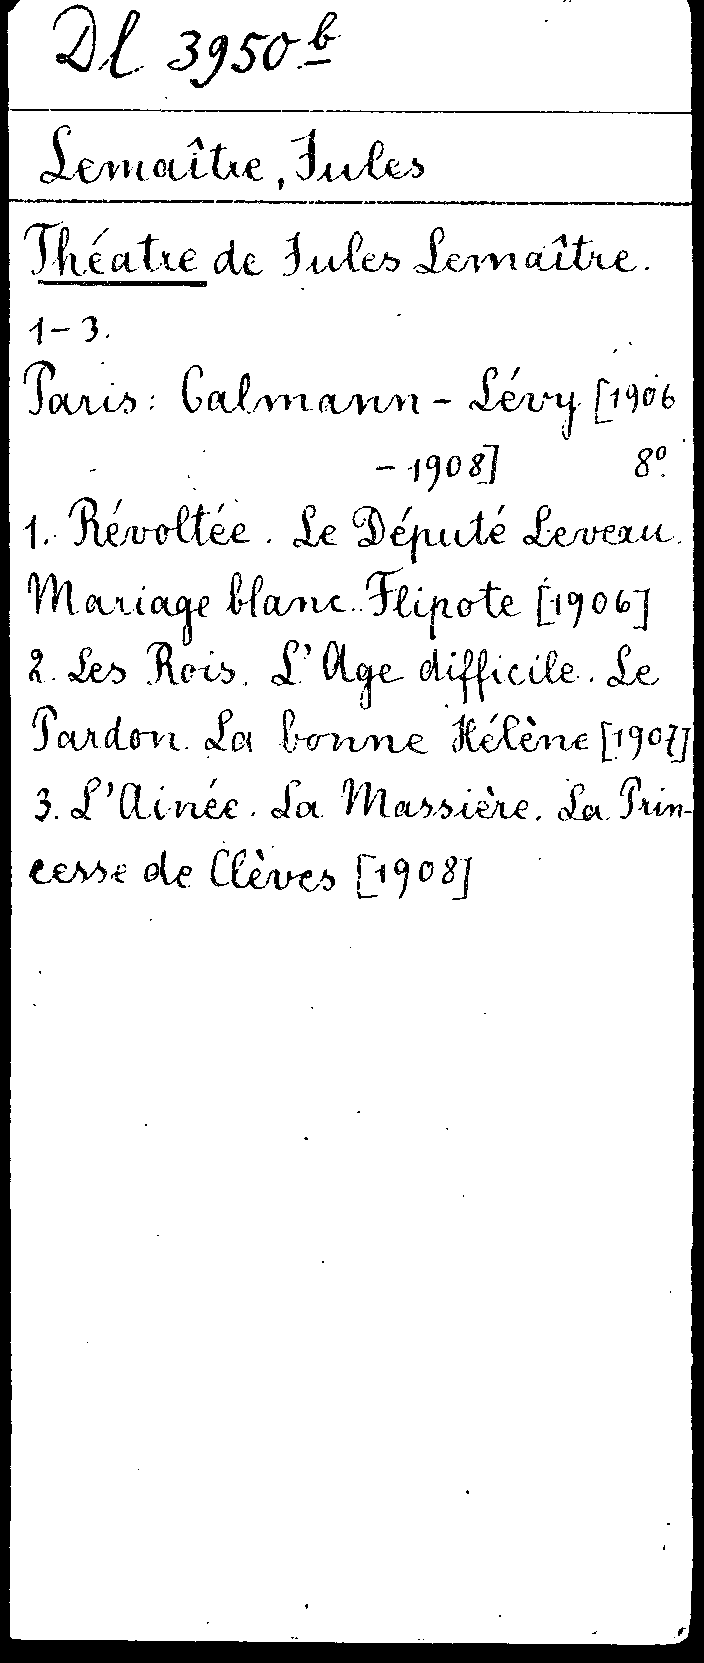 Dl 3950 b
Lemaître, Jules
Théatre de Jules Lemaître.
1-3.
Paris: Calmann-Lévy [1906
-1908] 8º.
1. Révoltée. Le Député Leveau.
Mariage blanc. Flipote [1906]
2. Les Rois. L'Age difficile. Le
Pardon. La bonne Hélène [1907]
3. L'Ainée. La Massière. La Prin-
cesse de Clèves [1908]